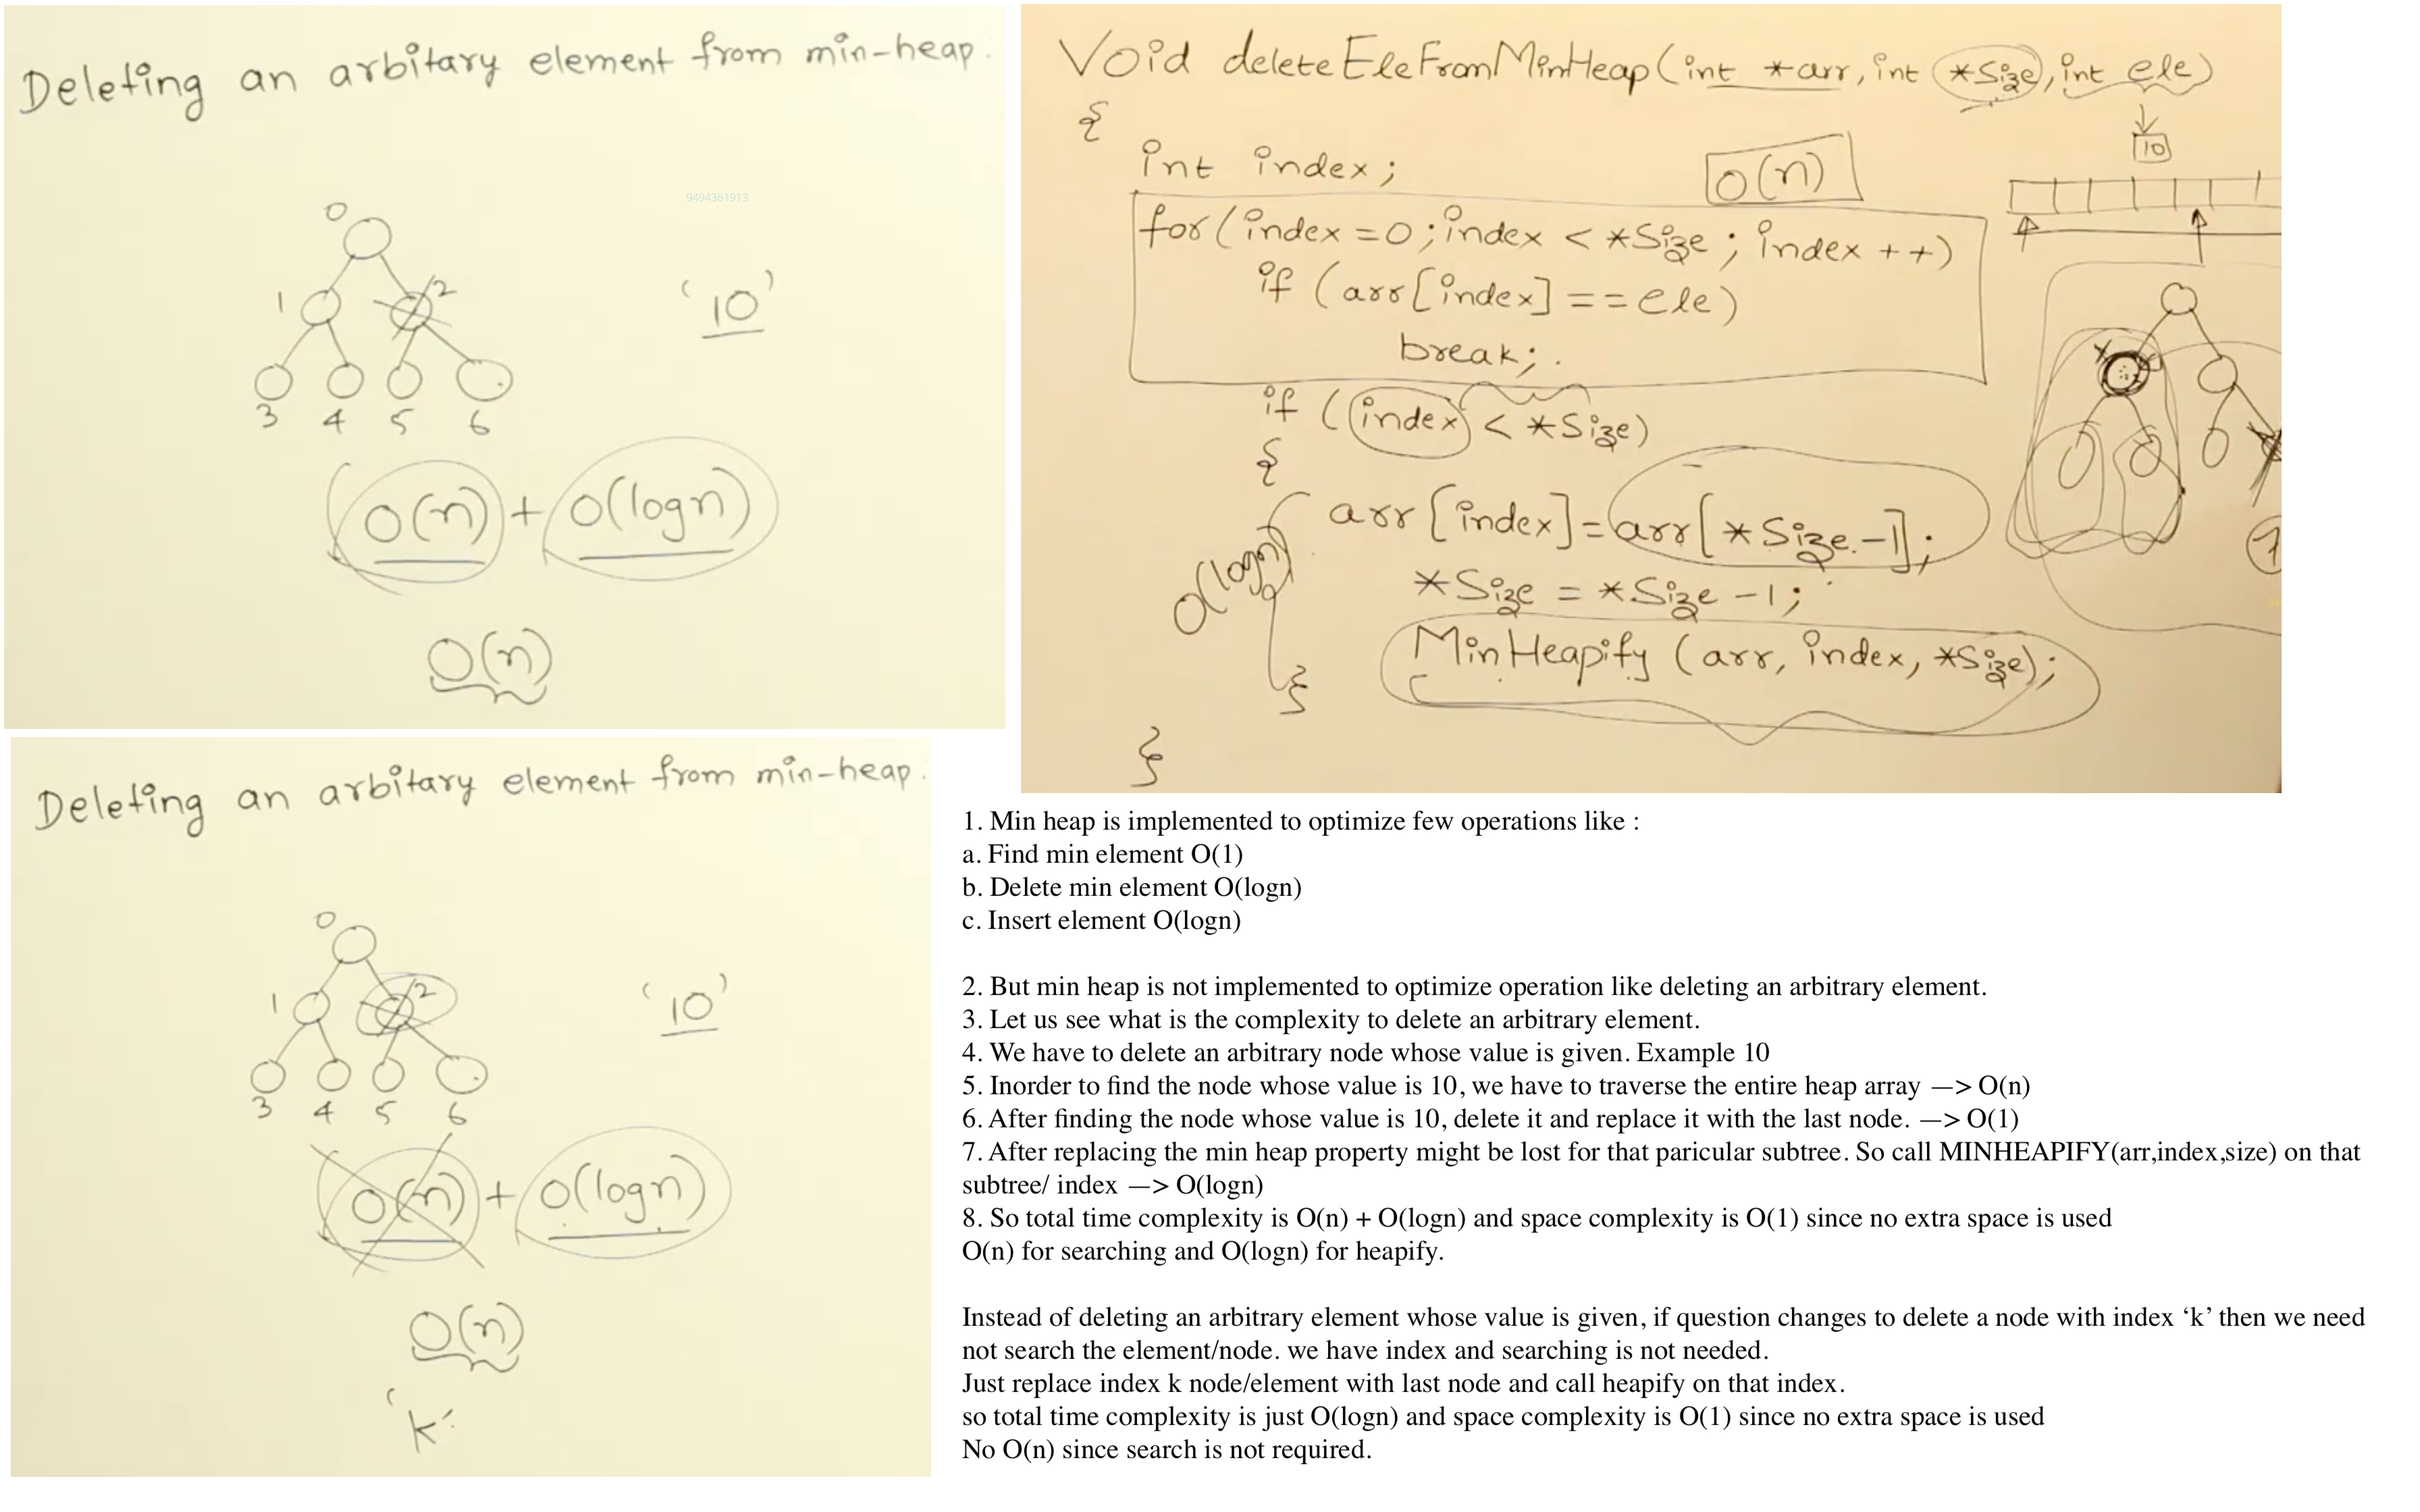 Deleting an arbitary element from min-heap.
9494361913
0
1
2
'10'
3 4 5 6
O(n) + O(logn)
O(n)
Void deleteEleFromMinHeap(int *arr, int *Size, int ele)
{
10
int index;
O(n)
for(index=0; index < *Size; index++)
if (arr[index]==ele)
break;
if (index < *Size)
{
arr[index]=arr[*Size-1];
*Size = *Size-1;
O(logn)
MinHeapify (arr, index, *Size);
}
}
Deleting an arbitary element from min-heap.
0
1
2
'10'
3 4 5 6
O(n) + O(logn)
O(n)
'k'
1. Min heap is implemented to optimize few operations like :
a. Find min element O(1)
b. Delete min element O(logn)
c. Insert element O(logn)
2. But min heap is not implemented to optimize operation like deleting an arbitrary element.
3. Let us see what is the complexity to delete an arbitrary element.
4. We have to delete an arbitrary node whose value is given. Example 10
5. Inorder to find the node whose value is 10, we have to traverse the entire heap array —> O(n)
6. After finding the node whose value is 10, delete it and replace it with the last node. —> O(1)
7. After replacing the min heap property might be lost for that paricular subtree. So call MINHEAPIFY(arr,index,size) on that
subtree/ index —> O(logn)
8. So total time complexity is O(n) + O(logn) and space complexity is O(1) since no extra space is used
O(n) for searching and O(logn) for heapify.
Instead of deleting an arbitrary element whose value is given, if question changes to delete a node with index ‘k’ then we need
not search the element/node. we have index and searching is not needed.
Just replace index k node/element with last node and call heapify on that index.
so total time complexity is just O(logn) and space complexity is O(1) since no extra space is used
No O(n) since search is not required.